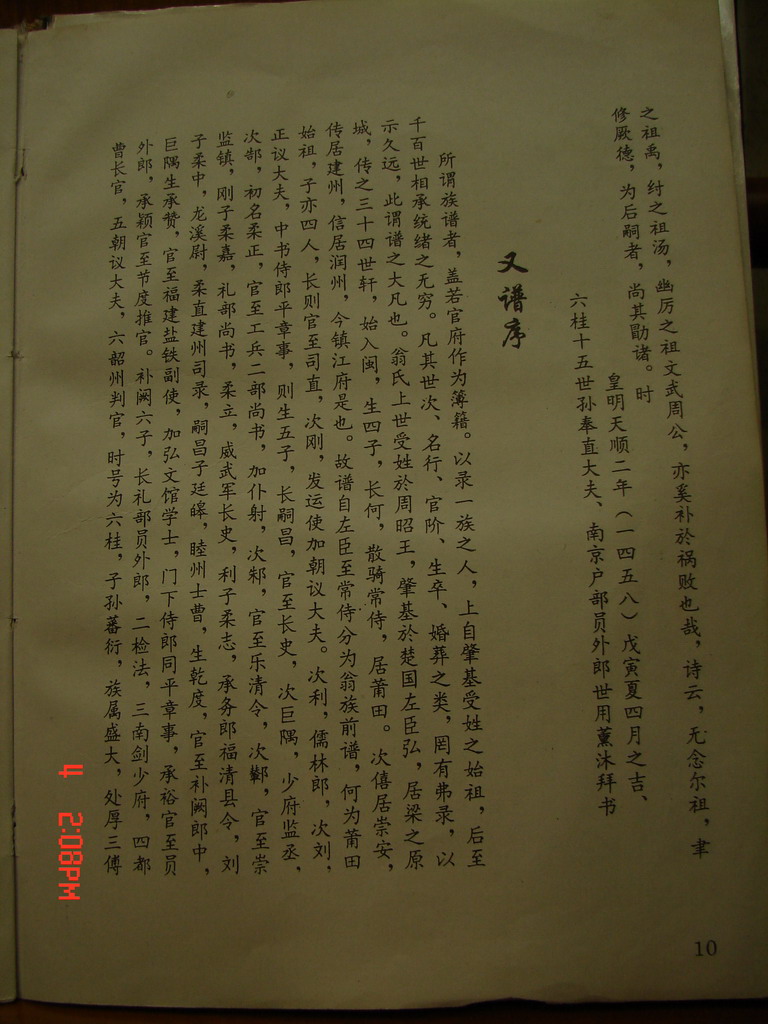 之祖禹，纣之祖汤，幽厉之祖文武周公，亦奚补於祸败也哉，诗云，无念尔祖，聿
修厥德，为后嗣者，尚其勖诸。时
皇明天顺二年（一四五八）戊寅夏四月之吉、
六桂十五世孙奉直大夫、南京户部员外郎世用薰沐拜书
又谱序
所谓族谱者，盖若官府作为薄籍。以录一族之人，上自肇基受姓之始祖，后至
千百世相承统绪之无穷。凡其世次、名行、官阶、生卒、婚葬之类，罔有弗录，以
示久远，此谓谱之大凡也。翁氏上世受姓於周昭王，肇基於楚国左臣弘，居梁之原
城，传之三十四世轩，始入闽，生四子，长何，散骑常侍，居莆田。次僖居崇安，
传居建州，信居润州，今镇江府是也。故谱自左臣至常侍分为翁族前谱，何为莆田
始祖，子亦四人，长则官至司直，次刚，发运使加朝议大夫。次利，儒林郎，次刘，
正议大夫，中书侍郎平章事，则生五子，长嗣昌，官至长史，次巨隅，少府监丞，
次郜，初名柔正，官至工兵二部尚书，加仆射，次邾，官至乐清令，次鄿，官至崇
监镇，刚子柔嘉，礼部尚书，柔立，威武军长史，利子柔志，承务郎福清县令，刘
子柔中，龙溪尉，柔直建州司录，嗣昌子廷皞，睦州士曹，生乾度，官至补阙郎中，
巨隅生承赞，官至福建盐铁副使，加弘文馆学士，门下侍郎同平章事，承裕官至员
外郎，承颖官至节度推官。补阙六子，长礼部员外郎，二检法，三南剑少府，四都
曹长官，五朝议大夫，六韶州判官，时号为六桂，子孙蕃衍，族属盛大，处厚三傅
10
4 2:08PM